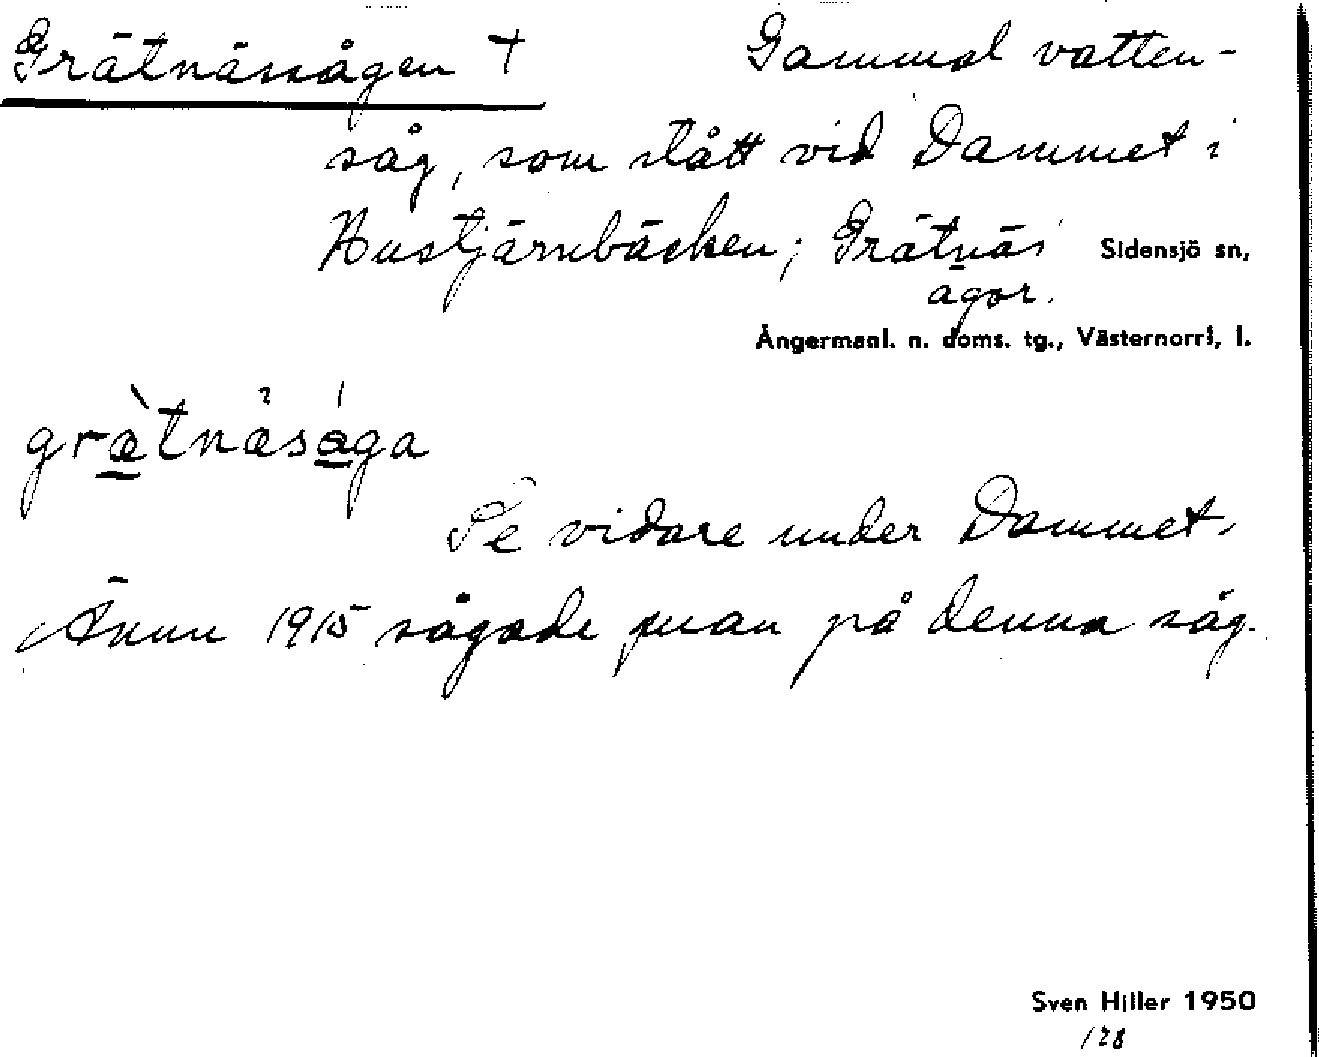 Grätnässågen †   Gammal vatten-
såg, som stått vid Dammet i
Hustjärnbäcken; Grätnäs Sidensjö sn,
ägor.
Ångermanl. n. doms. tg., Västernorrl. l.
græ̀tnæsåga
Se vidare under Dammet.
Ännu 1915 sågade man på denna såg.
Sven Hiller 1950
128